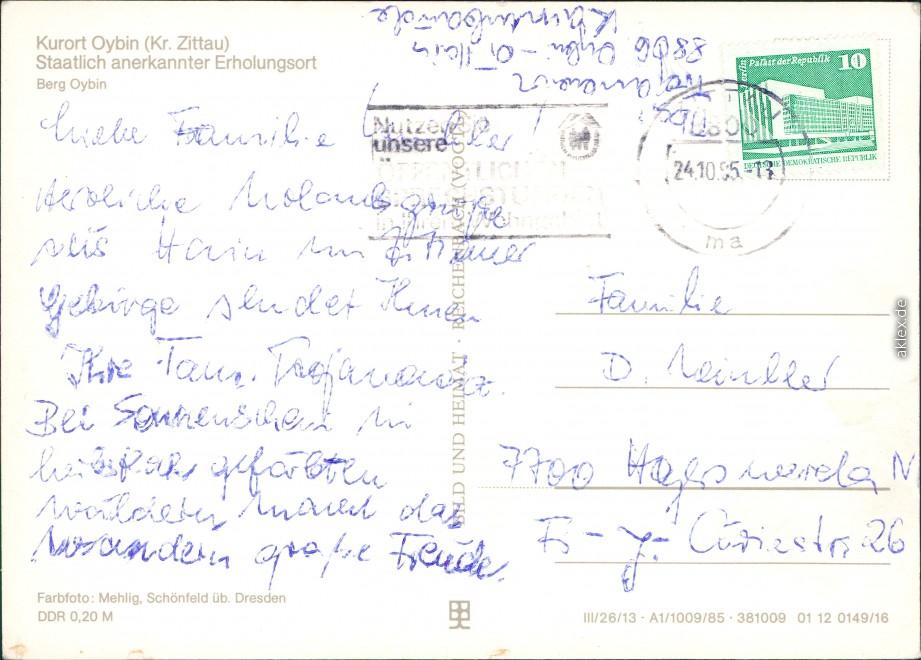 Kurort Oybin (Kr. Zittau)
Staatlich anerkannter Erholungsort
Berg Oybin
Liebe Familie
Herzliche Urlaubsgrüße
aus Hain im Zittauer
Gebirge sendet Ihnen
Ihre Fam. Trojanowicz.
Bei Sonnenschein in
herbstlich gefärbten
Wäldern macht das
Wandern große Freude.
Farbfoto: Mehlig, Schönfeld üb. Dresden
DDR 0,20 M
BILD UND HEIMAT · REICHENBACH (VOGTL)
Abs.:
8806 Oybin-Hain
Nutzen
unsere
24.10.85.-17
ma
Berlin Palast der Republik 10
DEUTSCHE DEMOKRATISCHE REPUBLIK
Familie
D.
7700 Hoyerswerda
F.-J.-Curiestr. 26
III/26/13 · A1/1009/85 · 381009 01 12 0149/16
aklex.de